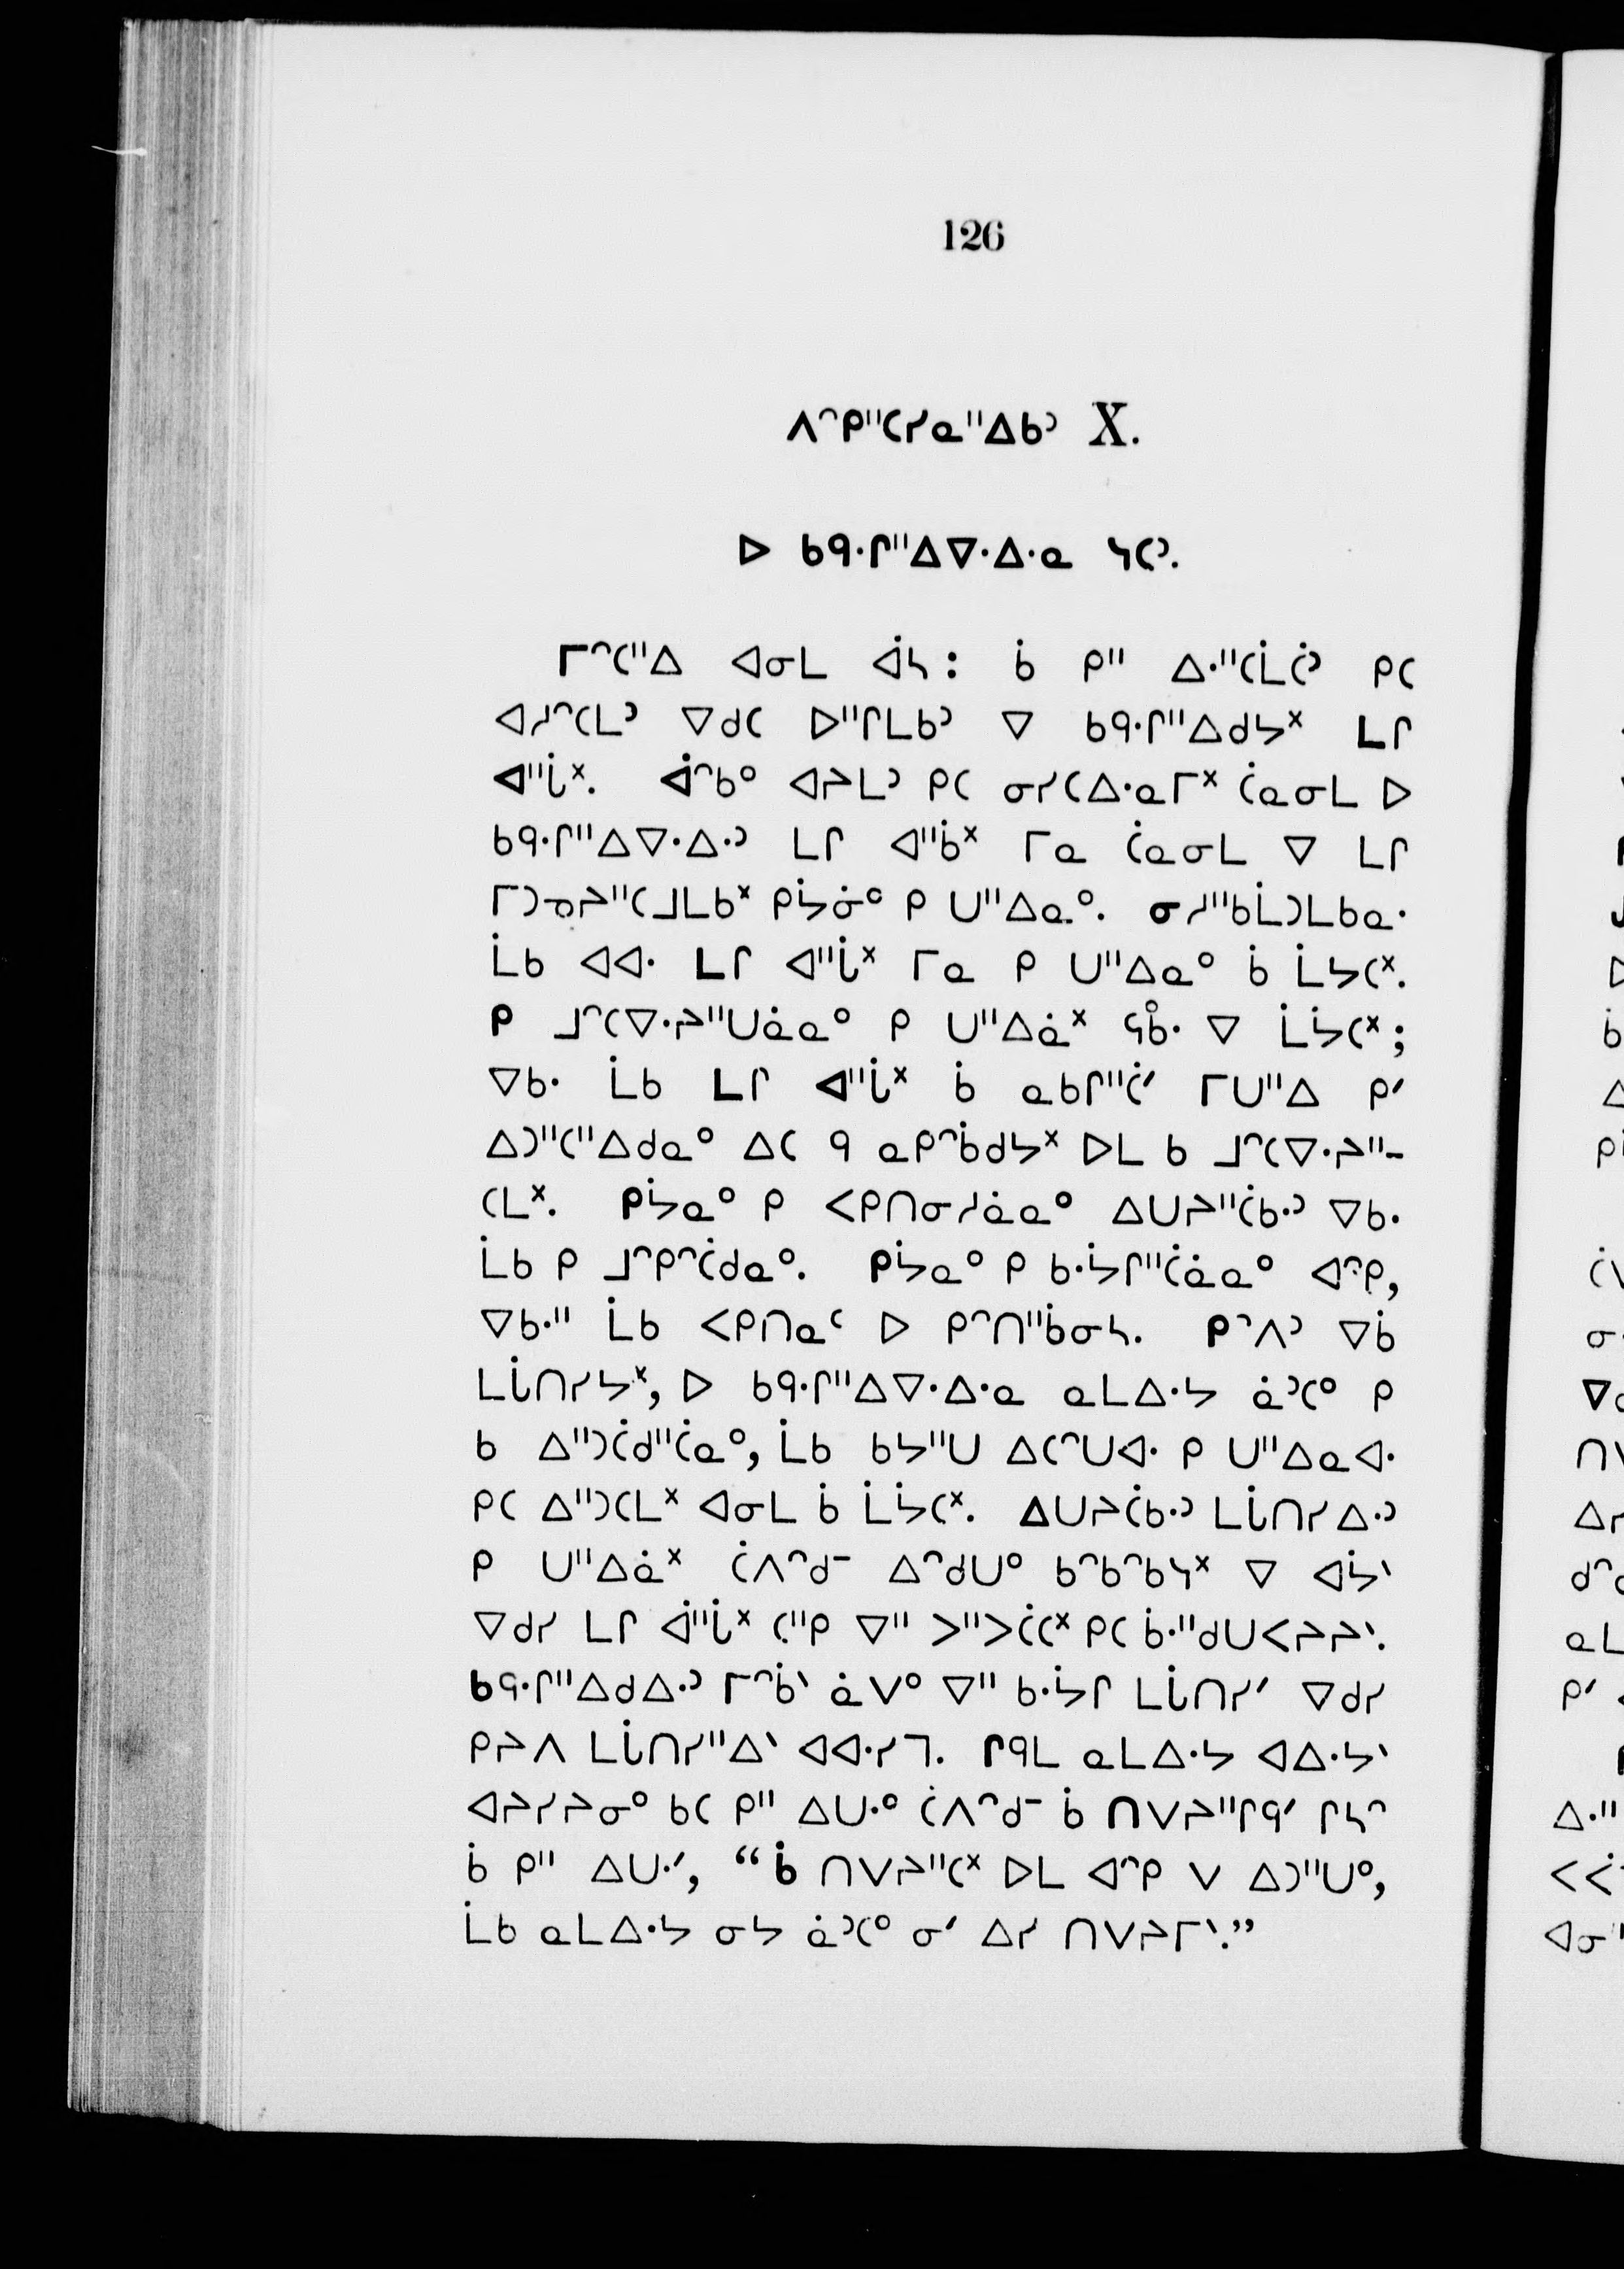 126
ᐱᐢᑭᐦᑕᓯᓇᐦᐃᑲᐣ X.
ᐅ ᑲᑫᐧᒋᐦᐃᐁᐧᐃᐧᓇ ᓴᑕᐣ.
ᒥᐢᑕᐦᐃ ᐊᓂᒪ ᐋᔭ: ᑳ ᑭᐦ ᐃᐧᐦᑕᒫᑖᐣ ᑭᑕ
ᐊᓱᐢᑕᒪᐣ ᐁᑯᑕ ᐅᐦᒋᒪᑲᐣ ᐁ ᑲᑫᐧᒋᐦᐃᑯᔭᕽ ᒪᒋ
ᐊᐦᒑᕽ. ᐋᐢᑲᐤ ᐊᔨᒪᐣ ᑭᑕ ᓂᓯᑕᐃᐧᓇᒥᕽ ᑖᓇᓂᒪ ᐅ
ᑲᑫᐧᒋᐦᐃᐁᐧᐃᐧᐣ ᒪᒋ ᐊᐦᑳᕽ ᒥᓇ ᑖᓇᓂᒪ ᐁ ᒪᒋ
ᒥᑐᓀᔨᐦᑕᒧᒪᑲᕽ ᑭᔮᓃᐤ ᑭ ᑌᐦᐃᓇᐤ. ᓂᓱᐦᑲᒫᑐᒪᑲᓇᐧ
ᒫᑲ ᐊᐊᐧ ᒪᒋ ᐊᐦᒑᕽ ᒥᓇ ᑭ ᑌᐦᐃᓇᐤ ᑳ ᒫᔭᑕᕽ.
ᑭ ᒧᐢᑕᐁᐧᔨᐦᑌᓈᓇᐤ ᑭ ᑌᐦᐃᓈᕽ ᑫᑾᐤ ᐁ ᒫᔮᑕᕽ;
ᐁᑲᐧ ᒫᑲ ᒪᒋ ᐊᐦᒑᕽ ᑳ ᓇᑲᒋᐦᑖᐟ ᒥᑌᐦᐃ ᑭᐟ
ᐃᑐᐦᑕᐦᐃᑯᓇᐤ ᐃᑕ ᑫ ᓇᑭᐢᑳᑯᔭᕽ ᐅᒪ ᑲ ᒧᐢᑕᐁᐧᔨᐦ-
ᑕᒪᕽ. ᑭᔮᓇᐤ ᑭ ᐸᑭᑎᓂᓱᓈᓇᐤ ᐃᑌᔨᐦᑖᑲᐧᐣ ᐁᑲᐧ
ᒫᑲ ᑭ ᒧᐢᑭᐢᑖᑯᓇᐤ. ᑭᔮᓇᐤ ᑭ ᑲᐧᔮᒋᐦᑖᓈᓇᐤ ᐊᐢᑭ,
ᐁᑲᐧᐦ ᒫᑲ ᐸᑭᑎᓇᑦ ᐅ ᑭᐢᑎᐦᑳᓂᓴ. ᑭᐢᐱᐣ ᐁᑳ
ᒪᒑᑎᓯᔭᕽ, ᐅ ᑲᑫᐧᒋᐦᐃᐁᐧᐃᐧᓇ ᓇᒪᐃᐧᔭ ᓈᐣᑕᐤ ᑭ
ᑲ ᐃᐦᑐᑖᑯᐦᑖᓇᐤ, ᒫᑲ ᑲᔭᐦᑌ ᐃᑕᐢᑌᐊᐧ ᑭ ᑌᐦᐃᓇᐊᐧ
ᑭᑕ ᐃᐦᑐᑕᒪᕽ ᐊᓂᒪ ᑳ ᒫᔮᑕᕽ. ᐃᑌᔨᑖᑲᐧᐣ ᒪᒑᑎᓯᐃᐧᐣ
ᑭ ᑌᐦᐃᓈᕽ ᑖᐱᐢᑰ ᐃᐢᑯᑌᐤ ᑲᐢᑲᐢᑲᓴᕽ ᐁ ᐊᔮᐠ
ᐁᑯᓯ ᒪᒋ ᐋᐦᒑᕽ ᑕᐦᑭ ᐁᐦ ᐳᐦᐳᑖᑕᕽ ᑭᑕ ᑳᐧᐦᑯᑌᐸᔨᔨᐠ.
ᑲᑫᐧᒋᐦᐃᑯᐃᐧᐣ ᒥᐢᑳᐠ ᓈᐯᐤ ᐁᐦ ᑲᐧᔮᒋ ᒪᒑᑎᓯᐟ ᐁᑯᓯ
ᑭᔨᐱ ᒪᒑᑎᓯᐦᐃᐠ ᐊᐊᐧᓯᒣ. ᒋᑫᒪ ᓇᒪᐃᐧᔭ ᐊᐃᐧᔭᐠ
ᐊᔨᓯᔨᓂᐤ ᑲᑕ ᑭᐦ ᐃᑌᐧᐤ ᑖᐱᐢᑰ ᑳ ᑎᐯᔨᐦᒋᑫᐟ ᒋᓴᐢ
ᑳ ᑭᐦ ᐃᑌᐧᐟ, “ᑳ ᑎᐯᔨᐦᑕᕽ ᐅᒪ ᐊᐢᑭ ᐯ ᐃᑐᐦᑌᐤ,
ᒫᑲ ᓇᒪᐃᐧᔭ ᓂᔭ ᓈᐣᑕᐤ ᓂᐟ ᐃᓯ ᑎᐯᔨᒥᐠ.”